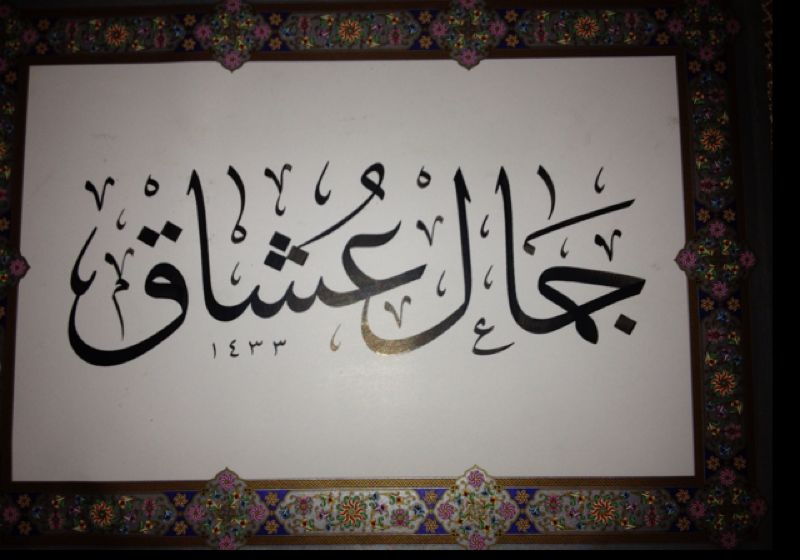 جَمَال عُشاق
١٤٣٣